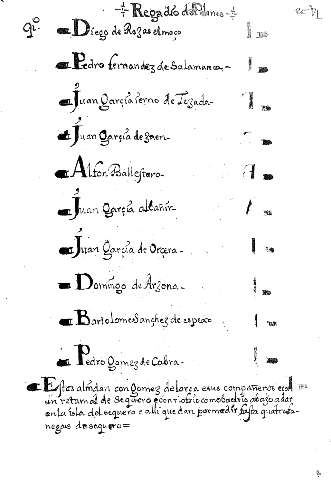 Regadío del Blanco
Diego de Rozas el moço
Pedro fernandez de Salamanca
Juan Garçia yerno de Tezada
Juan Garçia de Jaen
Alfon Ballestero
Juan Garçia albañir
Juan Garçia de Orçera
Domingo de Arzona
Bartolome Sanchez de espexo
Pedro Gomez de Cabra
Estos alindan con gomez de lorca e sus compañeros
un retamal de Sequero
en la isla del sequero e alli que dan por medir fasta quatro fa
negas de sequero =